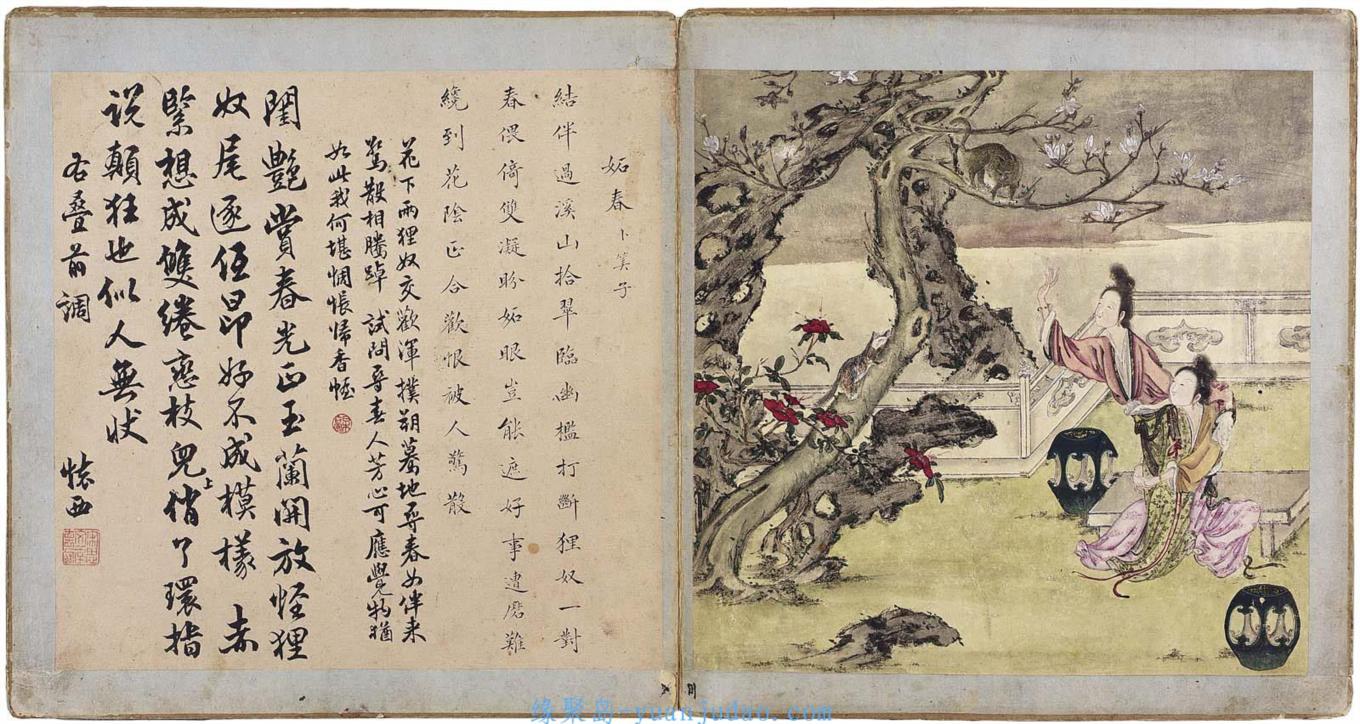 妬春 卜算子
結伴過溪山拾翠臨幽檻打斷狸奴一對
春偎倚雙凝盼妬眼豈能遮好事遭磨難
纔到花陰正合歡恨被人驚散
花下兩狸奴交歡渾撲朔驀地尋春女伴来
驚散相騰踔 試問尋春人芳心可應覺物猶
如此我何堪惆悵歸香幄
閨艷賞春光正玉蘭開放怪狸
奴尾逐低昂好不成模樣 赤
緊想成雙綣戀枝兒上俏丫環指
説顛狂也似人無狀
右疊前調 懷西
缘聚岛-yuanjudao.com